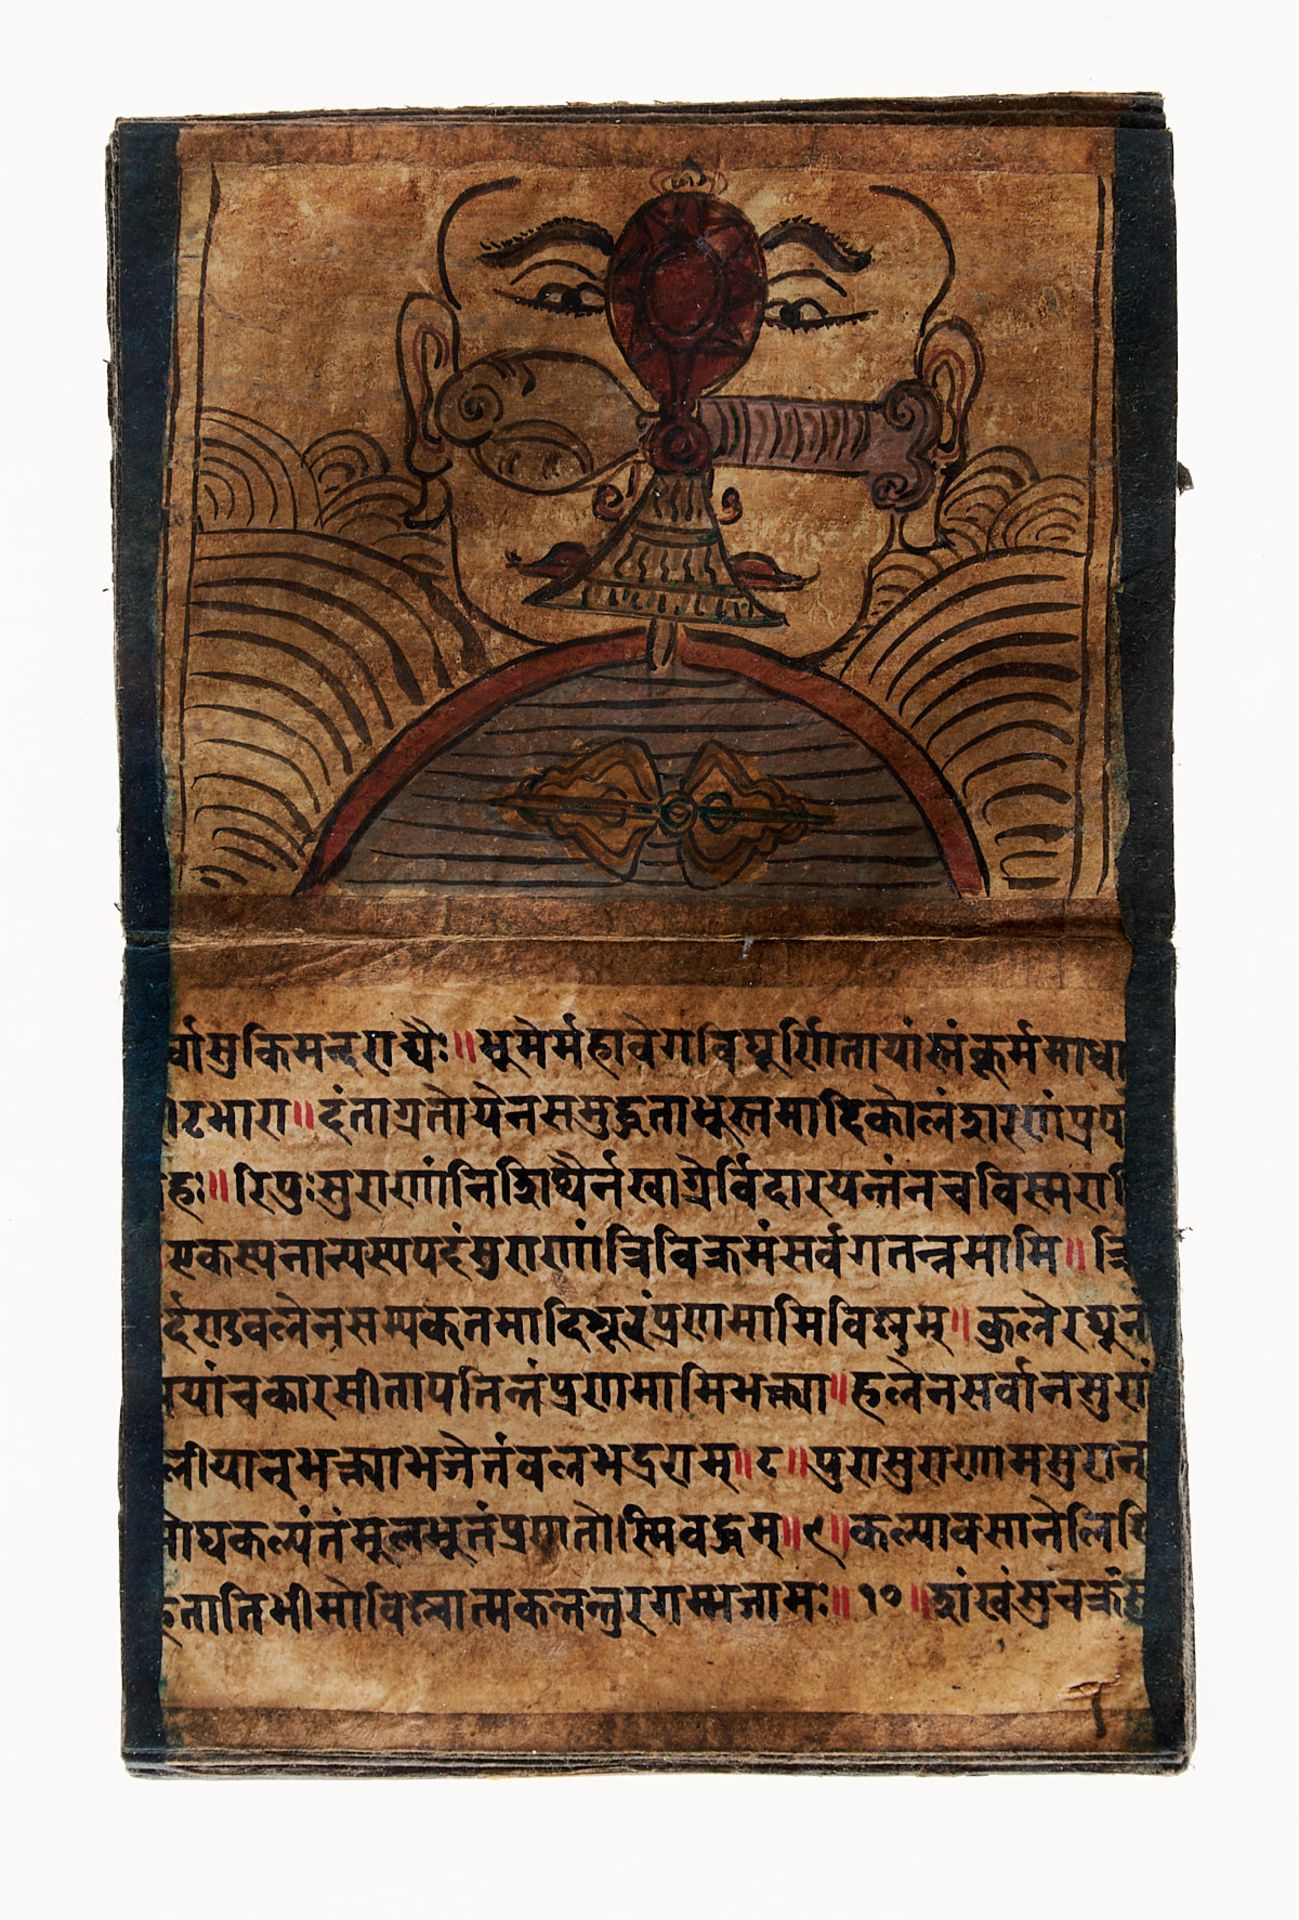 र्वासुकिमन्दराद्यैः॥भूमेर्महावेगविघूर्णितायांस्तंकूर्ममाधा
टभारा॥दंताग्रतोयेनसमुद्धृताभूस्तमादिकोलंशरणंप्रप
हः॥रिपुःसुराणांनिशिथैर्नखाग्रैर्विदारयन्तंनचविस्मरा
एकस्पनान्यस्यपदंसुराणांत्रिविक्रमंसर्वगतन्नमामि॥त्रि
बलेनसम्यक्तमादिशूरंप्रणमामिविष्णुम्॥कुलेरघून
यांचकारसीतापतिन्तंप्रणमामिभक्त्या॥हलेनसर्वानसुरां
लीयान्भक्त्याभजेतंबलभद्ररामम्॥८॥पुरासुराणामसुरान्
घकल्पंतंमूलभूतंप्रणतोस्मिबद्धम्॥९॥कल्पावसानेलि
नातिभीमोविश्वात्मकन्तन्तुरगम्भजामः॥१०॥शंखंसुचक्रंसु